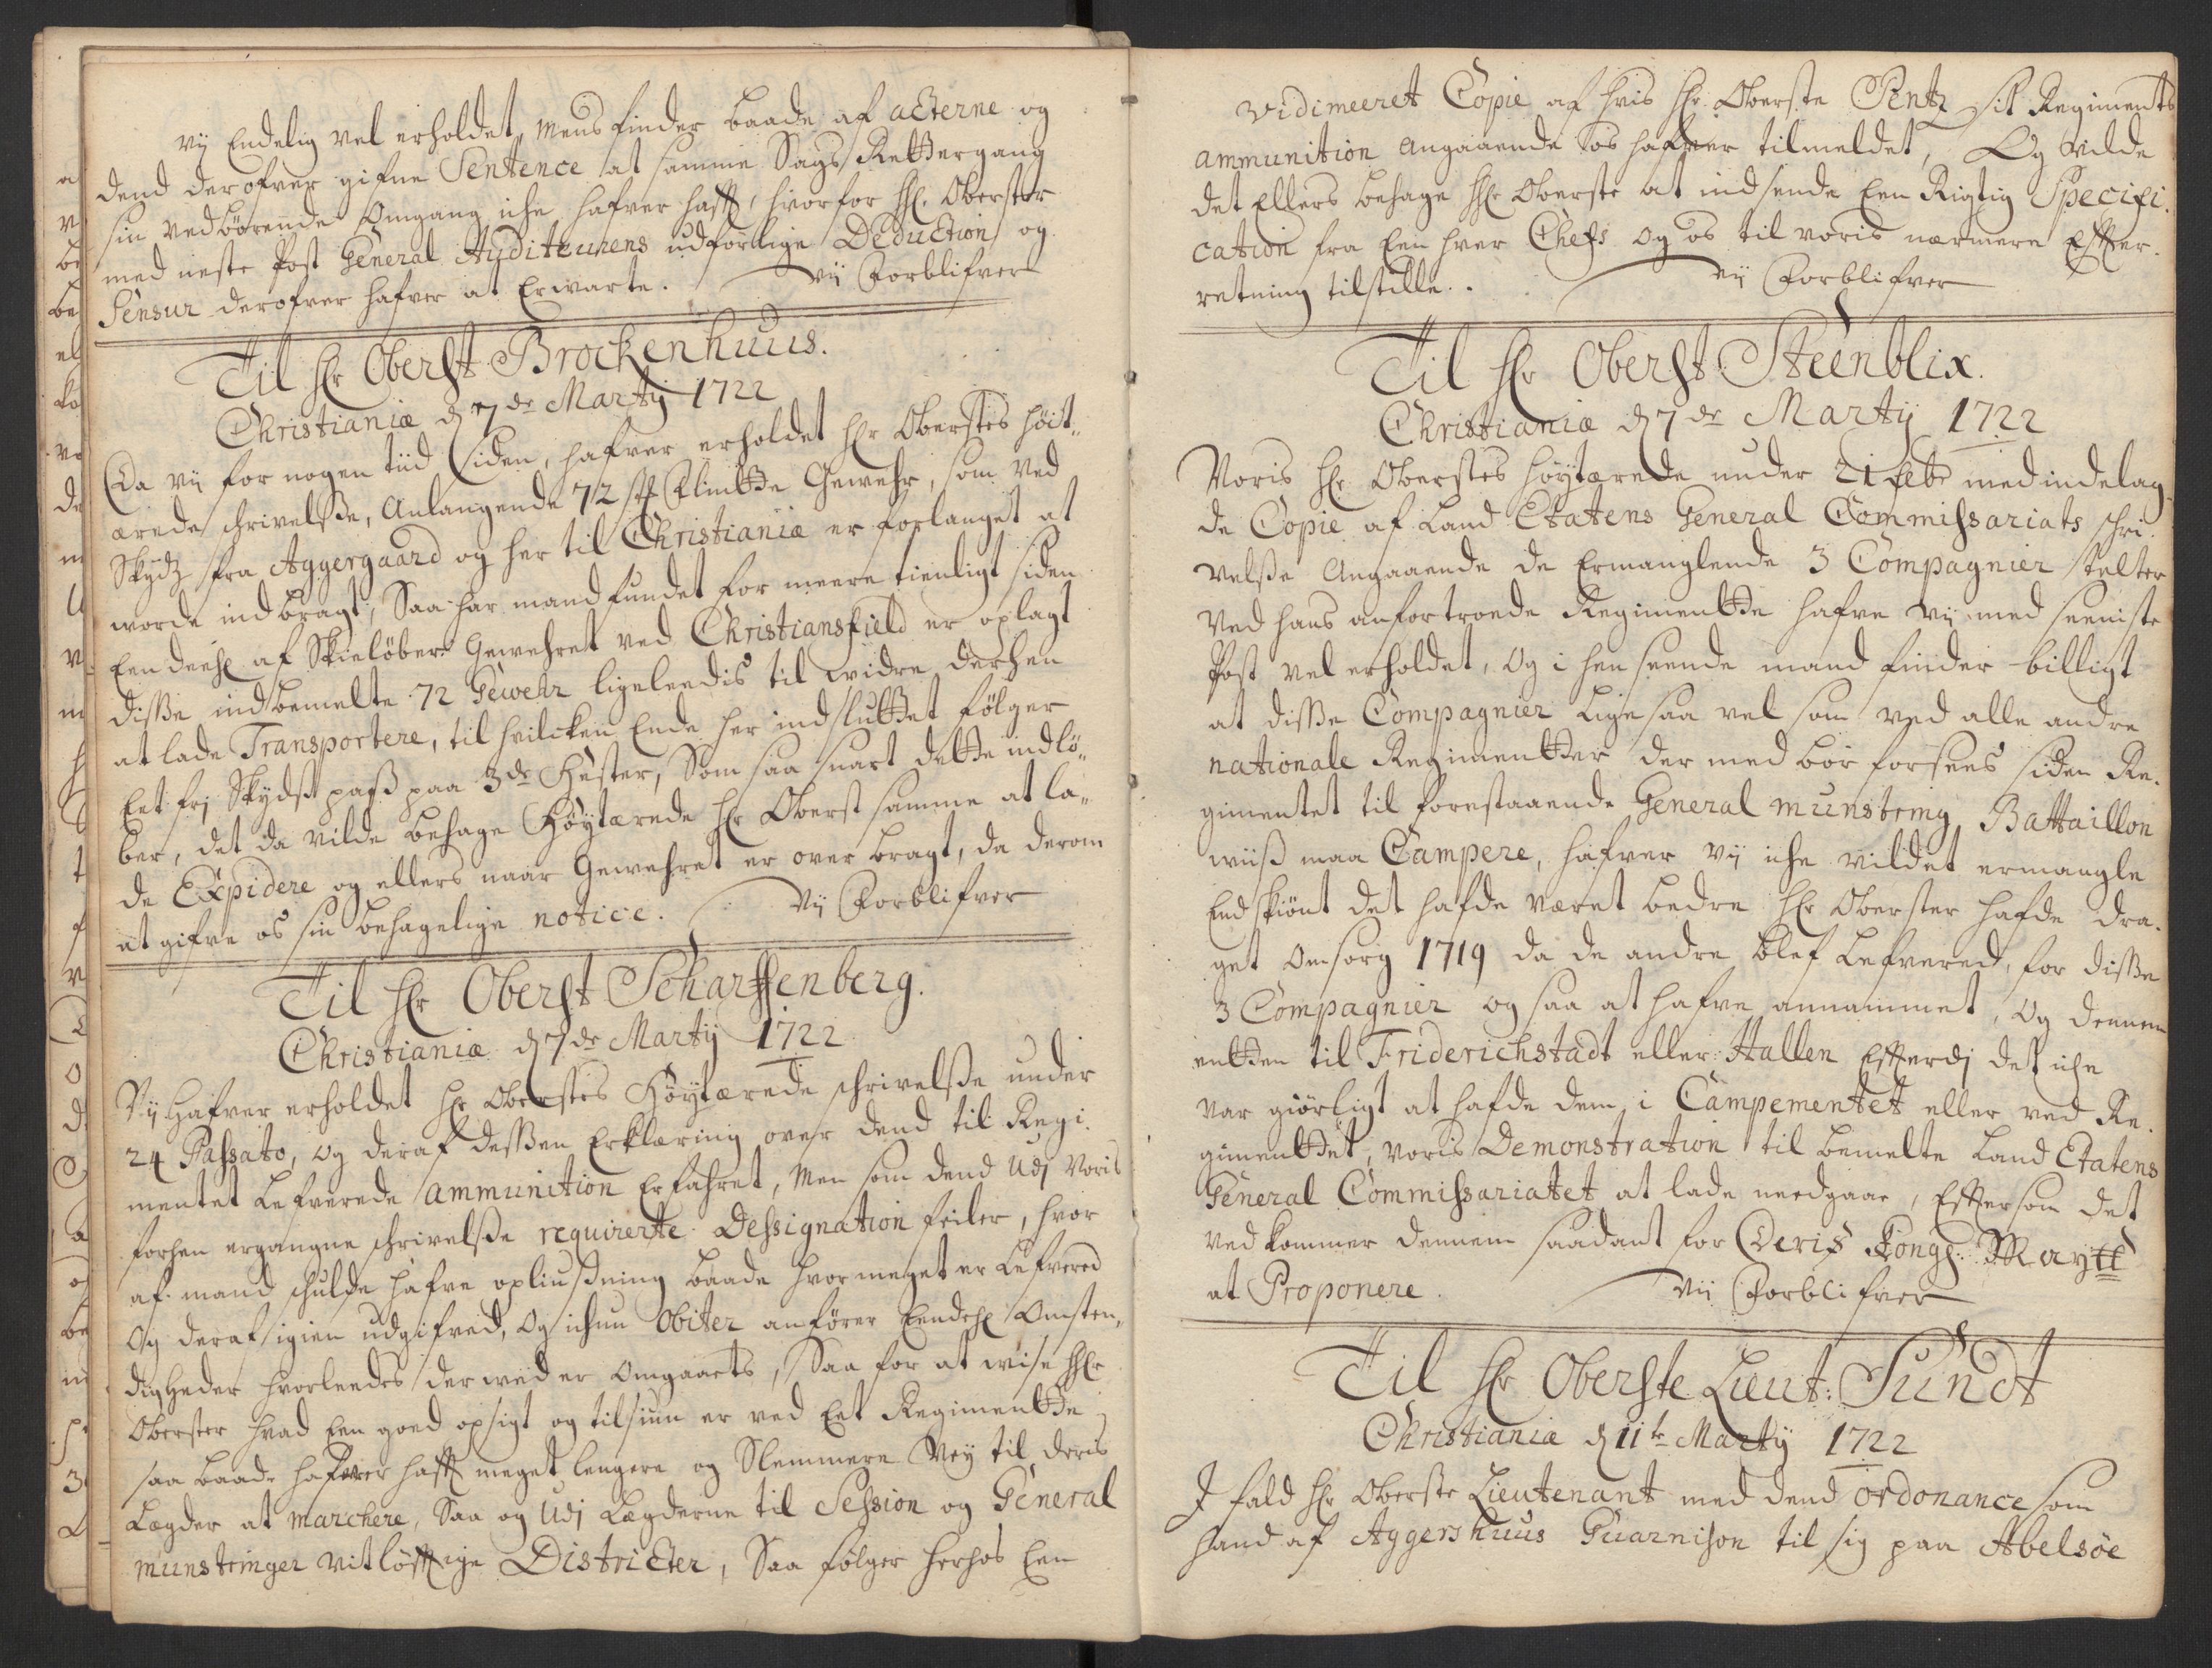 vij Endelig vel erholdet, Mens finder baade af acterne og
dend derofver gifne Sentence at samme Sags Rettergang
sin vedbörende Omgang iche hafver hafft, hvorfor Hr. Oberster
med neste Post General Auditeurens udförlige Deduction og
Sensur derofver hafver at Erwarte. vij Forblifver
Til Hr Oberst Brockenhuus.
Christiania d 7de Martij 1722
Da vij for nogen tiid siden, hafver erholdet Hr Oberstes höit„
ærede schrivelsse, Anlangende 72 stk Flintte Gewehr, som ved
Skydz fra Aggergaard og her til Christiania er forlanget at
worde indbragt; Saa har mand fundet for meere tienligt siden
Een deehl af Skielöber Gewehret ved Christiansfield er oplagt
disse indbemelte 72 Gewehr ligeleedis til widre derhen
at lade Transportere, til hvilcken Ende her indsluttet fölger
Eet frj Skydsz pasz paa 3de Hester, Som saa snart dette indlö„
ber, det da vilde behage Höytærede Hr Oberst samme at la„
de Expidere og ellers naar Gewehret er over bragt, da derom
at gifve os sin behagelige notice. Vij Forblifver
Til Hr Oberst Scharffenberg.
Christiania d 7de Martij 1722
Vij Hafver erholdet Hr Oberstes Höytærede schrivelsse under
24 Passato, og deraf dessen Erklæring over dend til Regi.
mentet Lefverede Ammunition Erfahret, Men som dend Udj Voris
forhen ergangne schrivelsse requirerte Dessignation feiler, hvor
af mand schulde hafve opliusning baade hvor meget er Lefvered
Og deraf igien udgifved, Og ichun Obiter anförer Eendehl Omsten„
digheder hvorleedes derwed er Omgaaets, Saa for at wise Hr
Oberster hvad Een goed opsigt og tilsiun er ved Eet Regimentte
saa baade hafver hafft meget lengere og Slemmere Vey til deris
Lægder at marchere, Saa og Udj Lægderne til Session og General
munstringer vitlöfftige Districter, Saa fölger herhos Een
vidimeeret Copie af hvis Hr. Oberste Pentz sit Regiments
ammunition angaaende Os hafver tilmeldet, Og vilde
det Ellers behage Hr Oberste at indsende Een Rigtig Specifi.
cation fra Een hver Chefs og os til voris nærmere Effter.
retning tilstille.. vij Forblifver
Til Hr Oberst Steenblix.
Christiania d 7de Martij 1722
Voris Hr Oberstes Höytærede under 21 febr med indelag
de Copie af Land Etatens General Commissariats schri.
velsse Angaaende de Ermanglende 3 Compagnier telter
Ved hans anfortroede Regimentte hafve vij med seeniste
Post vel erholdet, Og i henseende mand finder billigt
at disse Compagnier Lige saa vel som ved alle andre
nationale Regimentter der med bör forsees siden Re.
gimentet til forestaaende General munstring Battaillon
wiisz maa Campere, hafver vij iche vildet ermangle
End skiönt det hafde været bedre Hr Oberster hafde dra.
get Omsorg 1719 da de andre blef Lefvered, for disse
3 Compagnier og saa at hafve annammet, Og dennem
entten til Friderichstadt eller Hallen Effterdj det iche
var giörligt at hafde dem i Campementet eller ved Re.
gimenttet, voris Demonstration til bemelte Land Etatens
General Commissariatet at lade needgaae, Effterson det
ved kommer dennem saadant for Deris Kongl: Maytt
at Proponere. Vij Forblifver
Til Hr Oberste Lieut: Sundt
Christiania d 11te Martij 1722
I fald Hr Oberste Lieutenant med dend Ordonance som
hand af Aggershuus Guarnison til sig paa Abelsöe